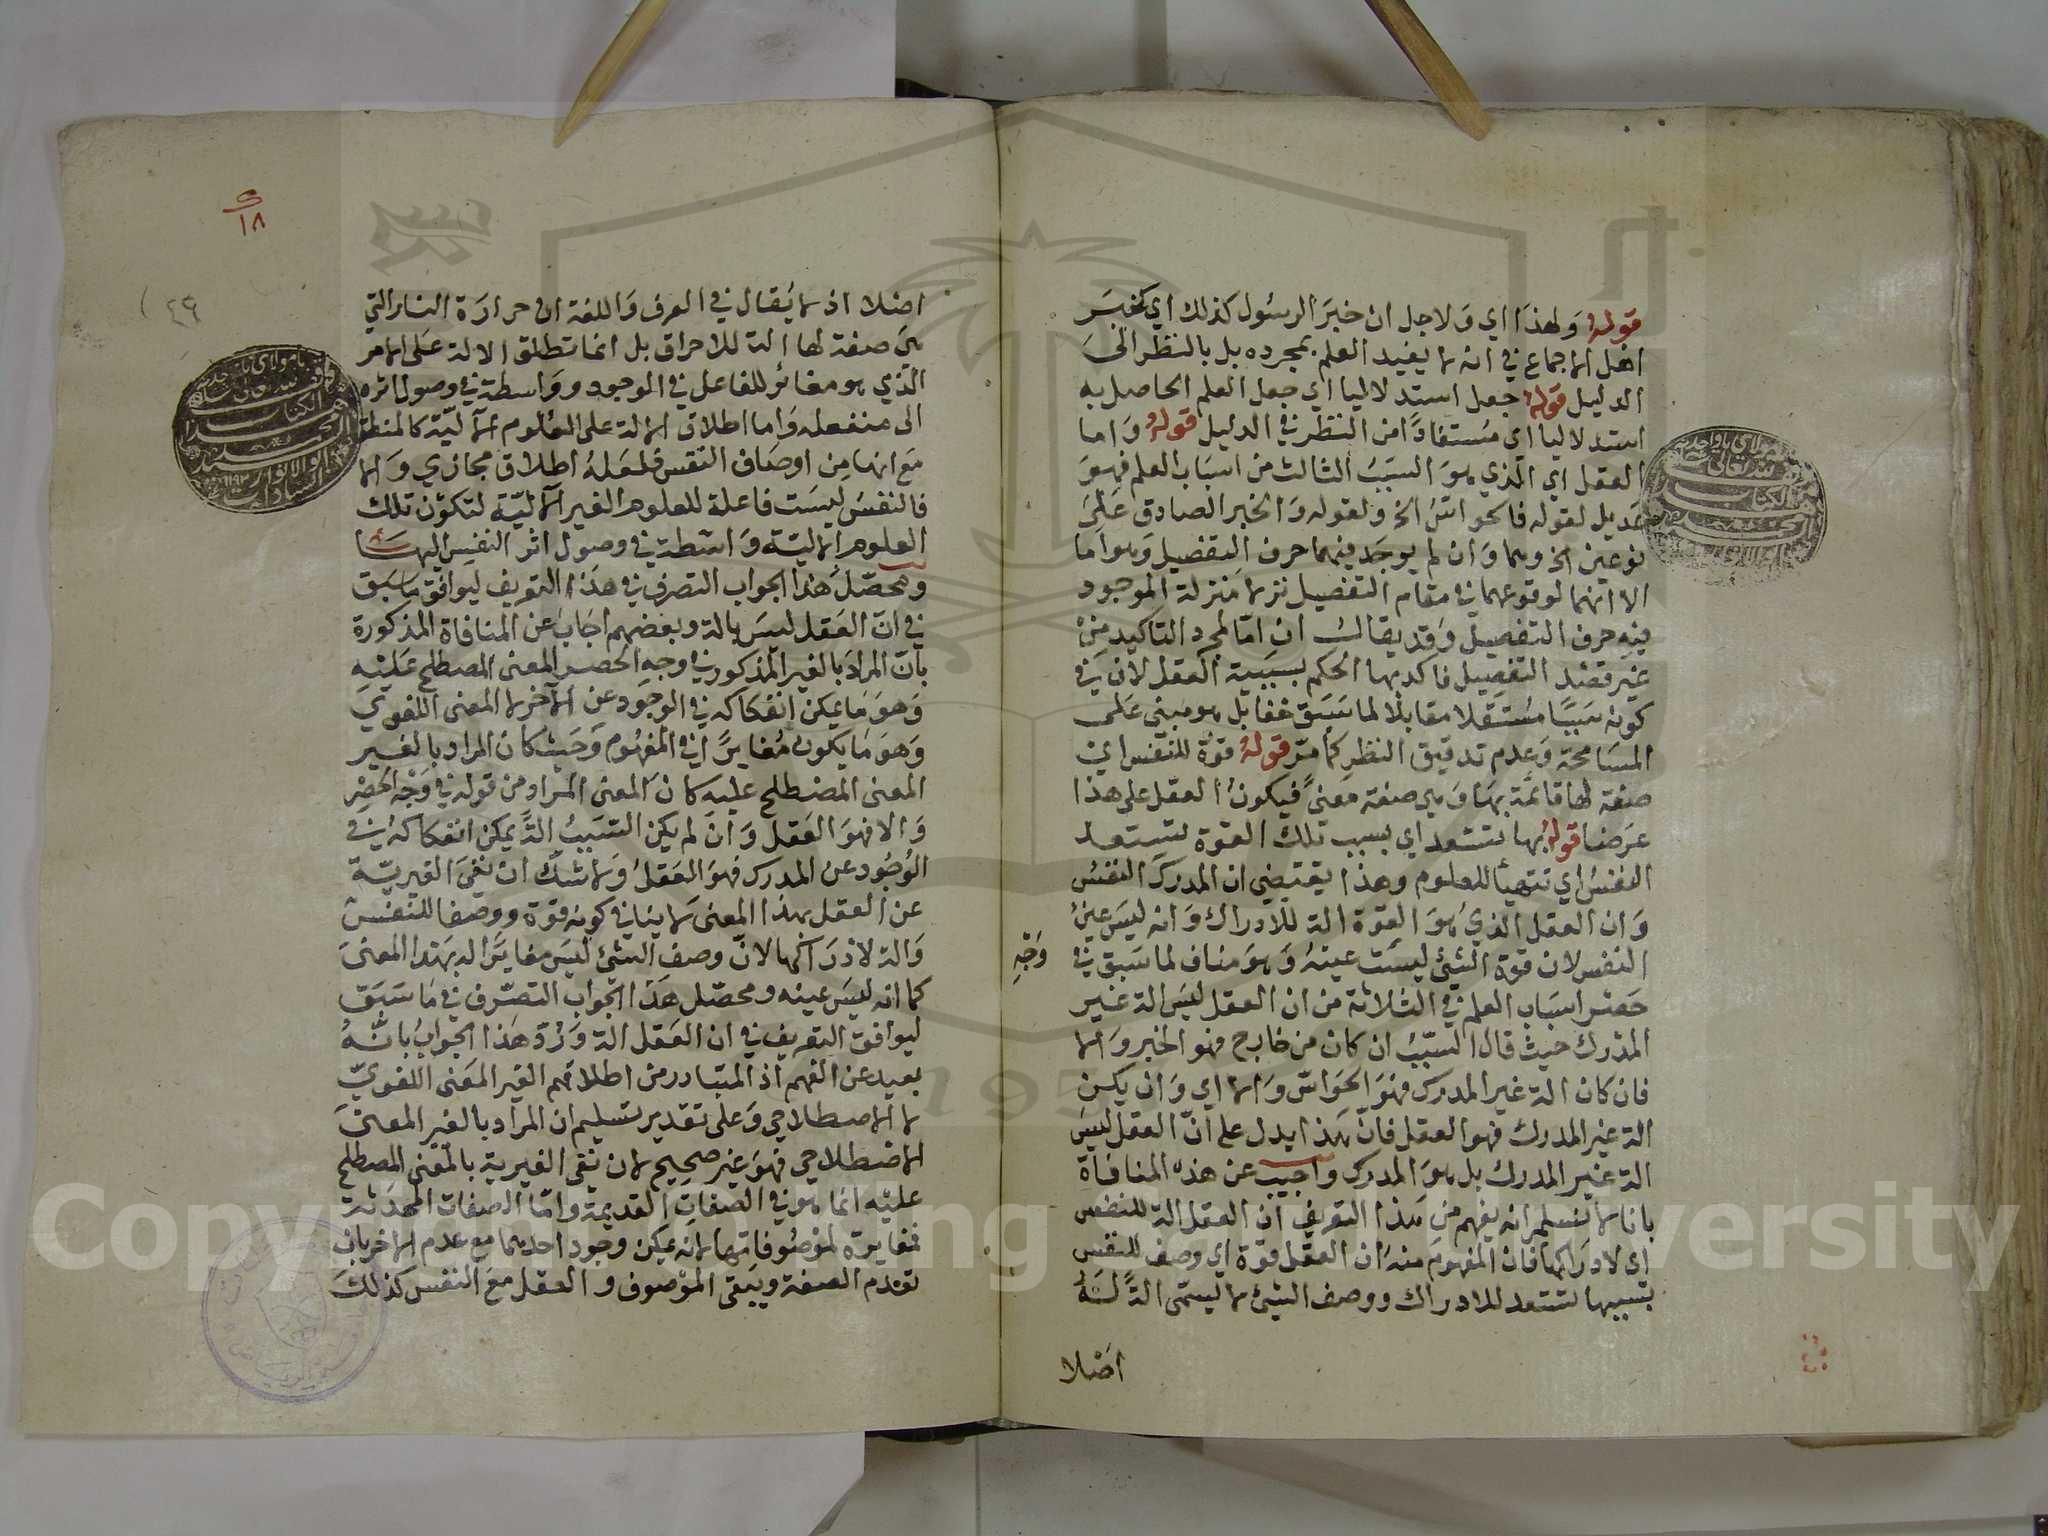 قوله ولهذا اي ولاجل ان خبر الرسول كذلك اي كخبر
اهل الاجماع في انه لا يفيد العلم بمجرده بل بالنظر الى
الدليل قوله جعل استدلاليا اي جعل العلم الحاصل به
استدلاليا اي مستفادا من النظر في الدليل قوله واما
العقل اي الذي هو السبب الثالث من اسباب العلم فهو
عديل لقوله فالحواس الخ ولقوله والخبر الصادق على
نوعين الخ وهما وان لم يوجد فيهما حرف التفضيل وهو اما
الا انهما لوقوعهما في مقام التفصيل نزلا منزلة الموجود
فيه حرف التفصيل وقد يقال ان اما لمجرد التاكيد من
غير قصد التفصيل فاكد بها الحكم بسببية العقل لان في
كونه سببا مستقلا مقابلا لما سبق خفا بل هو مبني على
المسامحة وعدم تدقيق النظر كما مر قوله قوة للنفس اي
صفة لها قائمة بها وهي صفة معنى فيكون العقل على هذا
عرضا قوله بها تستعد اي بسبب تلك القوة تستعد
النفس اي تتهيأ للعلوم وهذا يقتضي ان المدرك النفس
وان العقل الذي هو القوة الة للادراك وانه ليس عين
النفس لان قوة الشئ ليست عينه وهو مناف لما سبق في
وجه
حصر اسباب العلم في الثلاثة من ان العقل ليس الة غير
المدرك حيث قال السبب ان كان من خارج فهو الخبر والا
فان كان الة غير المدرك فهو الحواس والا اي وان يكن
الة غير المدرك فهو العقل فان هذا يدل على ان العقل ليس
الة غير المدرك بل هو المدرك واجيب عن هذه المنافاة
بانا لا نسلم انه يفهم من هذا التعريف ان العقل الة للنفس
اي لادراكها فان المفهوم منه ان العقل قوة اي وصف للنفس
بسببها تستعد للادراك ووصف الشئ لا يسمى الة له
اصلا
ك
١٨
٤٩
اصلا اذ لا يقال في العرف واللغة ان حرارة النار التي
هي صفة لها الة للاحراق بل انما تطلق الالة على الامر
الذي هو مغائر للفاعل في الوجود وواسطة في وصول اثره
الى منفعله واما اطلاق الالة على العلوم الآلية كالمنطق
مع انها من اوصاف النفس فلعله اطلاق مجازي والا
فالنفس ليست فاعلة للعلوم الغير الآلية لتكون تلك
العلوم الالية واسطة في وصول اثر النفس اليها
ومحصل هذا الجواب التصرف في هذا التعريف ليوافق ما سبق
في ان العقل ليس بالة وبعضهم اجاب عن المنافاة المذكورة
بان المراد بالغير المذكور في وجه الحصر المعنى المصطلح عليه
وهو ما يمكن انفكاكه في الوجود عن الآخر لا المعنى اللغوي
وهو ما يكون مغايرا في المفهوم وحيث كان المراد بالغير
المعنى المصطلح عليه كان المعنى المراد من قوله في وجه الحصر
والا فهو العقل وان لم يكن السبب الة يمكن انفكاكه في
الوجود عن المدرك فهو العقل ولا شك ان نفي الغيرية
عن العقل بهذا المعنى لا ينافي كونه قوة ووصفا للنفس
والة لادراكها لان وصف الشئ ليس مغايرا له بهذا المعنى
كما انه ليس عينه ومحصل هذا الجواب التصرف في ما سبق
ليوافق التعريف في ان العقل الة ورد هذا الجواب بانه
بعيد عن الفهم اذ المتبادر من اطلاقهم الغير المعنى اللغوي
لا الاصطلاحي وعلى تقدير تسليم ان المراد بالغير المعنى
الاصطلاحي فهو غير صحيح لان نفي الغيرية بالمعنى المصطلح
عليه انما هو في الصفات القديمة واما الصفات المحدثة
فمغايرة لموصوفاتها لانه يمكن وجود احديهما مع عدم الاخر بان
تعدم الصفة ويبقى الموصوف والعقل مع النفس كذلك
Copyright © King Saud University